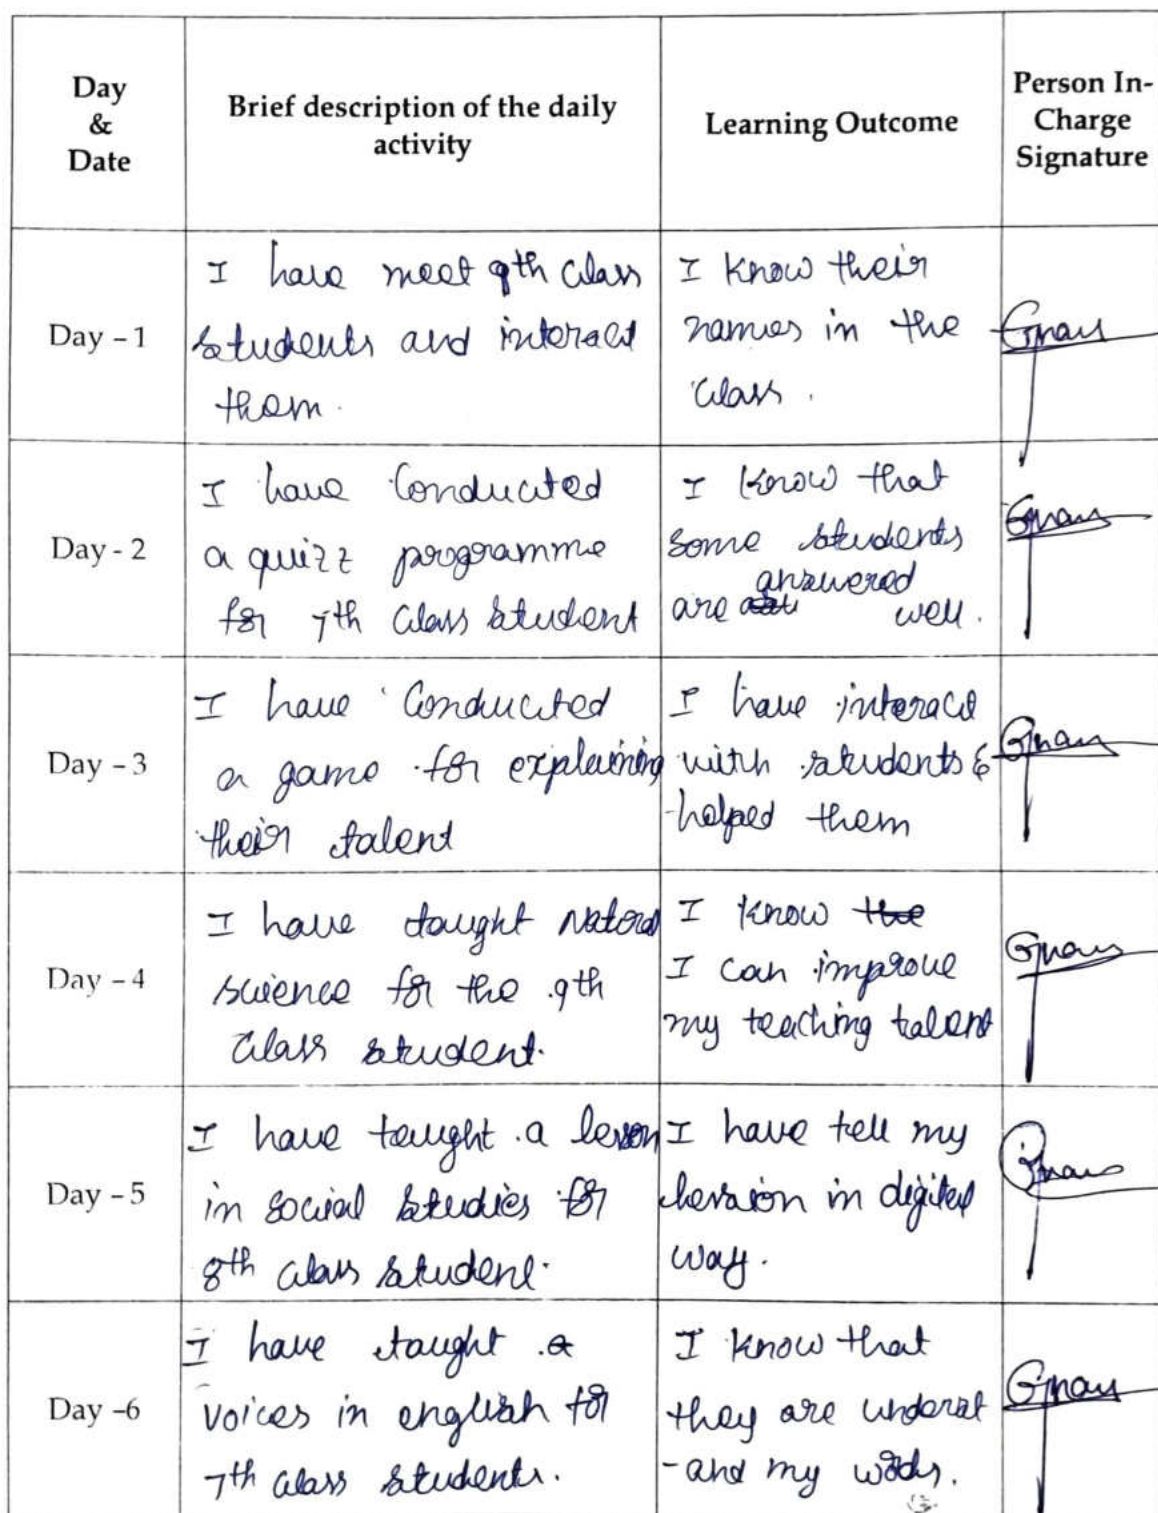 Day
&
Date
Brief description of the daily
activity
Learning Outcome
Person In-
Charge
Signature
Day - 1
I have meet 9th class
students and interact
them.
I know their
names in the
class.
Day - 2
I have conducted
a quizz programme
for 7th class student
I know that
some students
answered
are well.
Day - 3
I have conducted
a game for explaining
their talent
I have interact
with students &
helped them
Day - 4
I have taught Natural
science for the 9th
class student.
I know the
I can improve
my teaching talent
Day - 5
I have taught a lesson
in social studies for
8th class student.
I have tell my
in digital
way.
Day -6
I have taught a
voices in english for
7th class students.
I know that
they are underst
-and my words.